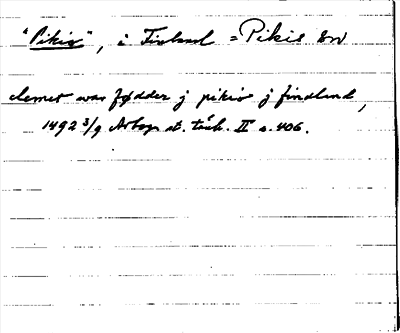 "Pikis", i Finland = Pikis sn
clemet war fødder j pikis j findland,
1492 3/9 Arboga st. tänk. II s. 406.